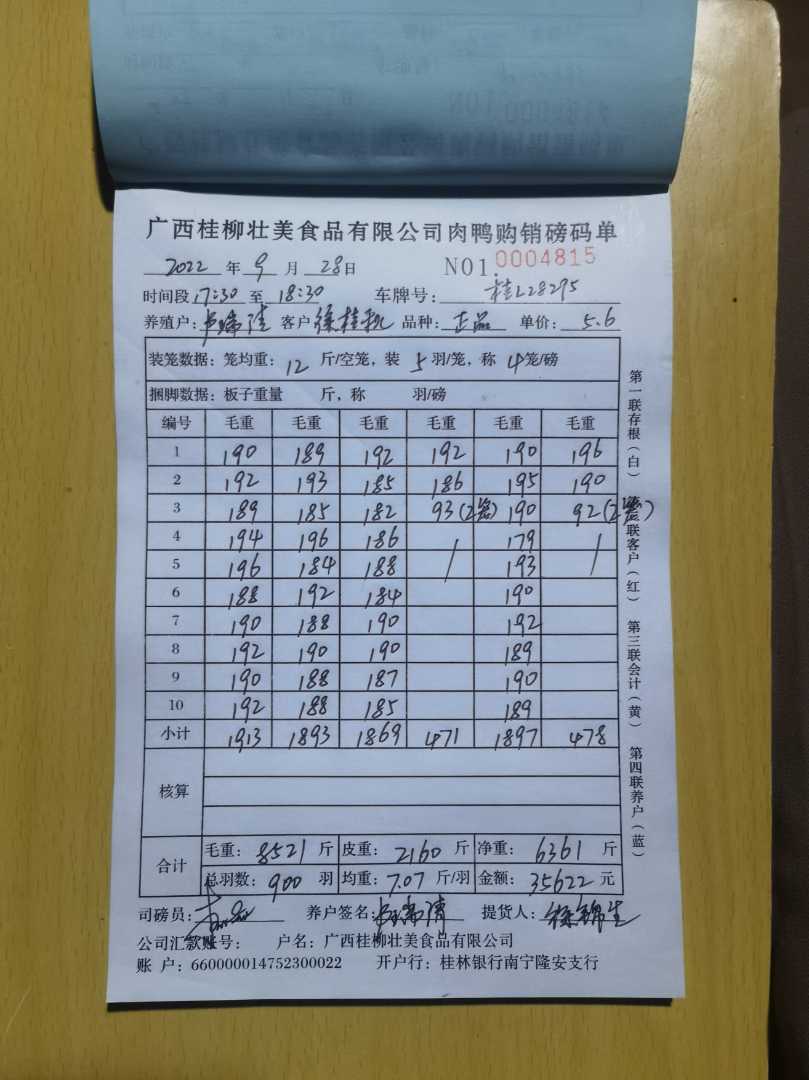 广西桂柳壮美食品有限公司肉鸭购销磅码单
2022 年 9 月 28日 NO1. 0004815
时间段 17:30 至 18:30 车牌号: 桂L28295
养殖户: 客户 徐桂机 品种: 正品 单价: 5.6
装笼数据: 笼均重: 12 斤/空笼, 装 5 羽/笼, 称 4笼/磅
捆脚数据: 板子重量 斤, 称 羽/磅
编号 毛重 毛重 毛重 毛重 毛重 毛重
1 190 189 192 192 190 196
2 192 193 185 186 195 190
3 189 185 182 93(2笼) 190 92(2笼)
4 194 196 186 / 179 /
5 196 184 188 193
6 188 192 184 190
7 190 188 190 192
8 192 190 190 189
9 190 188 187 190
10 192 188 185 189
小计 1913 1893 1869 471 1897 478
核算
合计
毛重: 8521 斤 皮重: 2160 斤 净重: 6361 斤
总羽数: 900 羽 均重: 7.07 斤/羽 金额: 35622 元
司磅员: 养户签名: 提货人: 徐锦生
公司汇款账号: 户名: 广西桂柳壮美食品有限公司
账 户: 660000014752300022 开户行: 桂林银行南宁隆安支行
第一联存根(白) 联客户(红) 第三联会计(黄) 第四联养户(蓝)